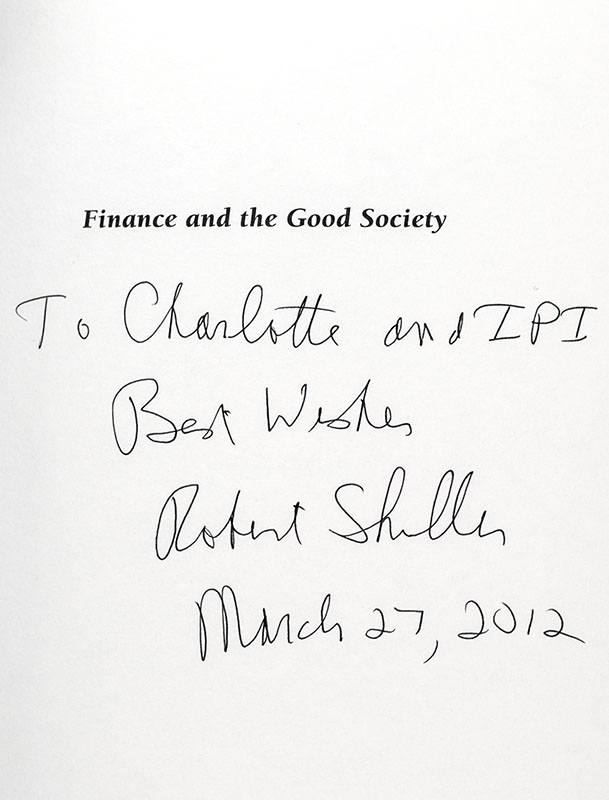 Finance and the Good Society
To Charlotte and IPI
Best Wishes
Robert Shiller
March 27, 2012